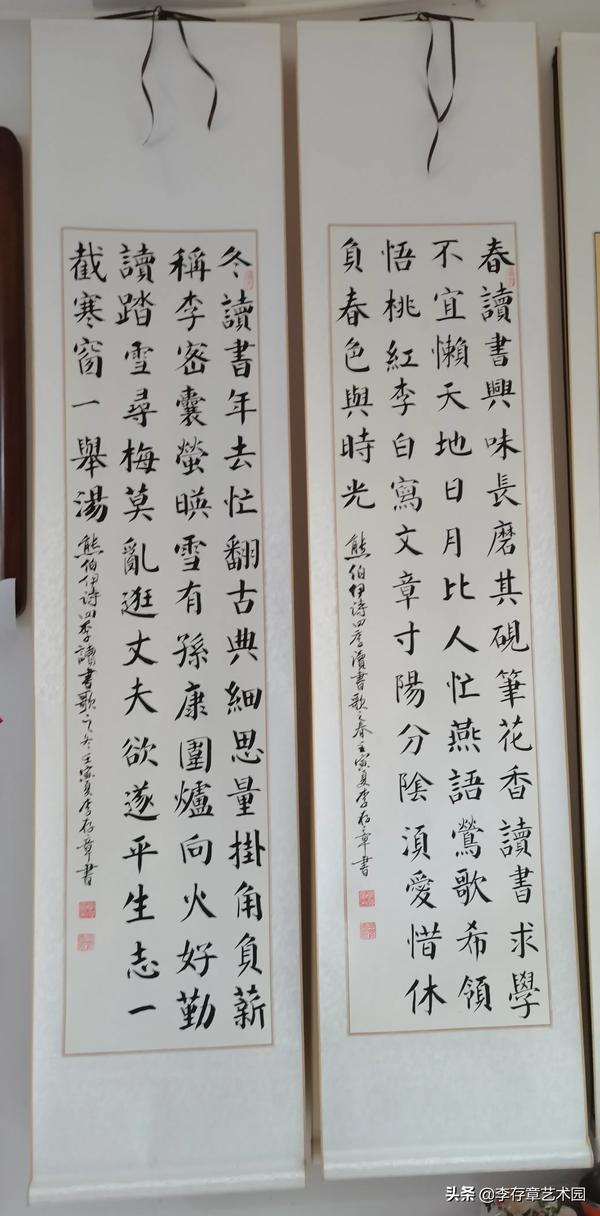 春讀書興味長磨其硯筆花香讀書求學
不宜懶天地日月比人忙燕語鶯歌希領
悟桃紅李白寫文章寸陽分陰須愛惜休
負春色與時光
熊伯伊诗四季读書歌之春壬寅夏李存章書
冬讀書年去忙翻古典細思量掛角負薪
稱李密囊螢暎雪有孫康圍爐向火好勤
讀踏雪尋梅莫亂逛丈夫欲遂平生志一
截寒窗一舉湯
熊伯伊诗四季讀書歌之冬壬寅夏李存章書
头条 @李存章艺术园